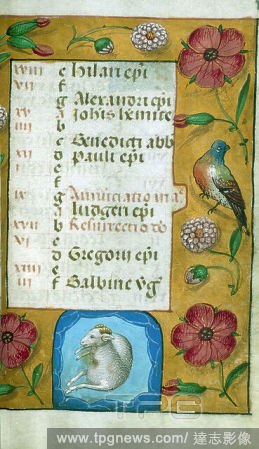 xviii e hilari epi
vii f
g Alexandri epi
xv a Johis hemite
iiii b
c Benedicti abb
xii d Pauli epi
i e
f
ix g Annunciatio ma
a ludgeri epi
xvii b Resurrectio do
vi c
d Gregorii epi
xiiii e
iii f Balbine v̄g
TPG
www.tpgnews.com / 達志影像